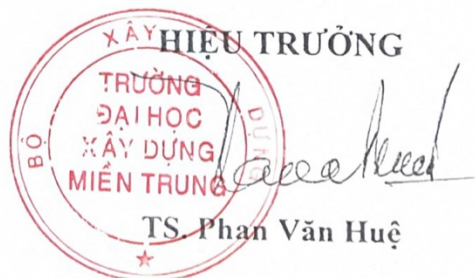 HIỆU TRƯỞNG
BỘ XÂY DỰNG
TRƯỜNG
ĐẠI HỌC
XÂY DỰNG
MIỀN TRUNG
TS. Phan Văn Huệ